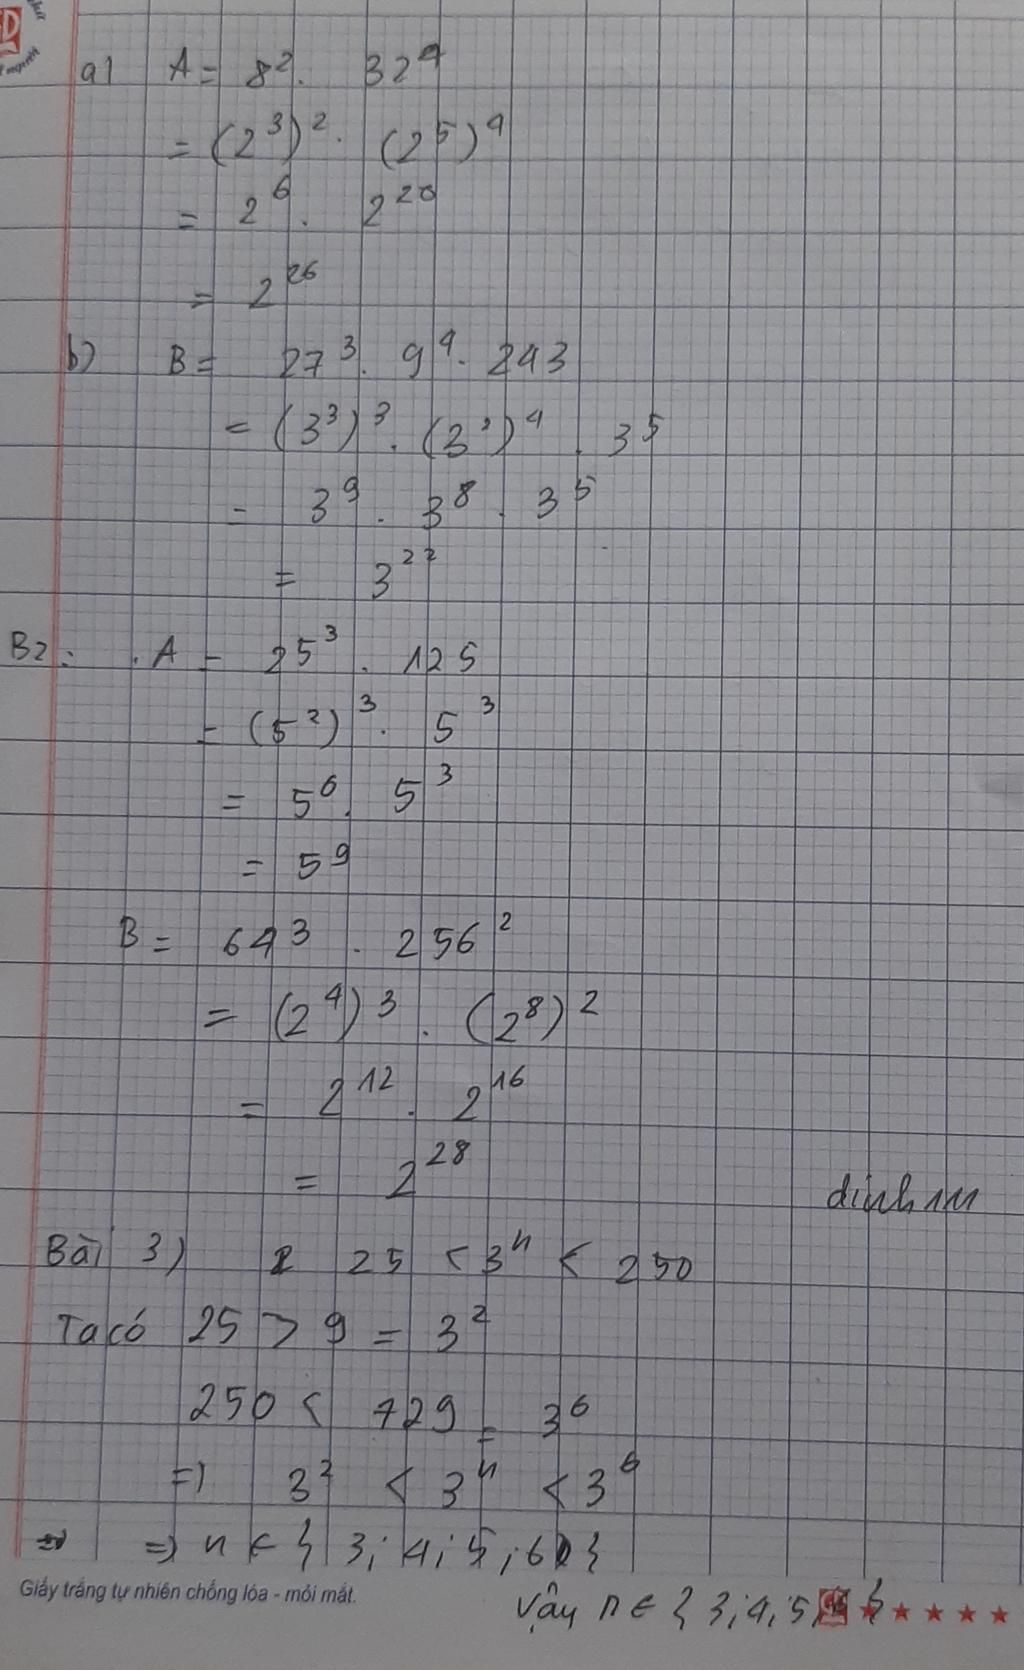 a) A = 8². 32⁴
= (2³)². (2⁵)⁴
= 2⁶. 2²⁰
= 2²⁶
b) B = 27³. 9⁴. 243
= (3³)³. (3²)⁴. 3⁵
= 3⁹. 3⁸. 3⁵
= 3²²
B2: A = 25³. 125
= (5²)³. 5³
= 5⁶. 5³
= 5⁹
B = 64³. 256²
= (2⁴)³. (2⁸)²
= 2¹². 2¹⁶
= 2²⁸
Bài 3) 25 < 3ⁿ < 250
Ta có 25 > 9 = 3²
250 < 729 = 3⁶
=> 3² < 3ⁿ < 3⁶
=> n ∈ { 3; 4; 5; 6 }
Giấy trắng tự nhiên chống lóa - mỏi mắt.
Vậy n ∈ { 3; 4; 5 }